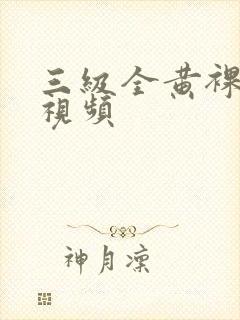 三級全黃裸
視頻
神月凜